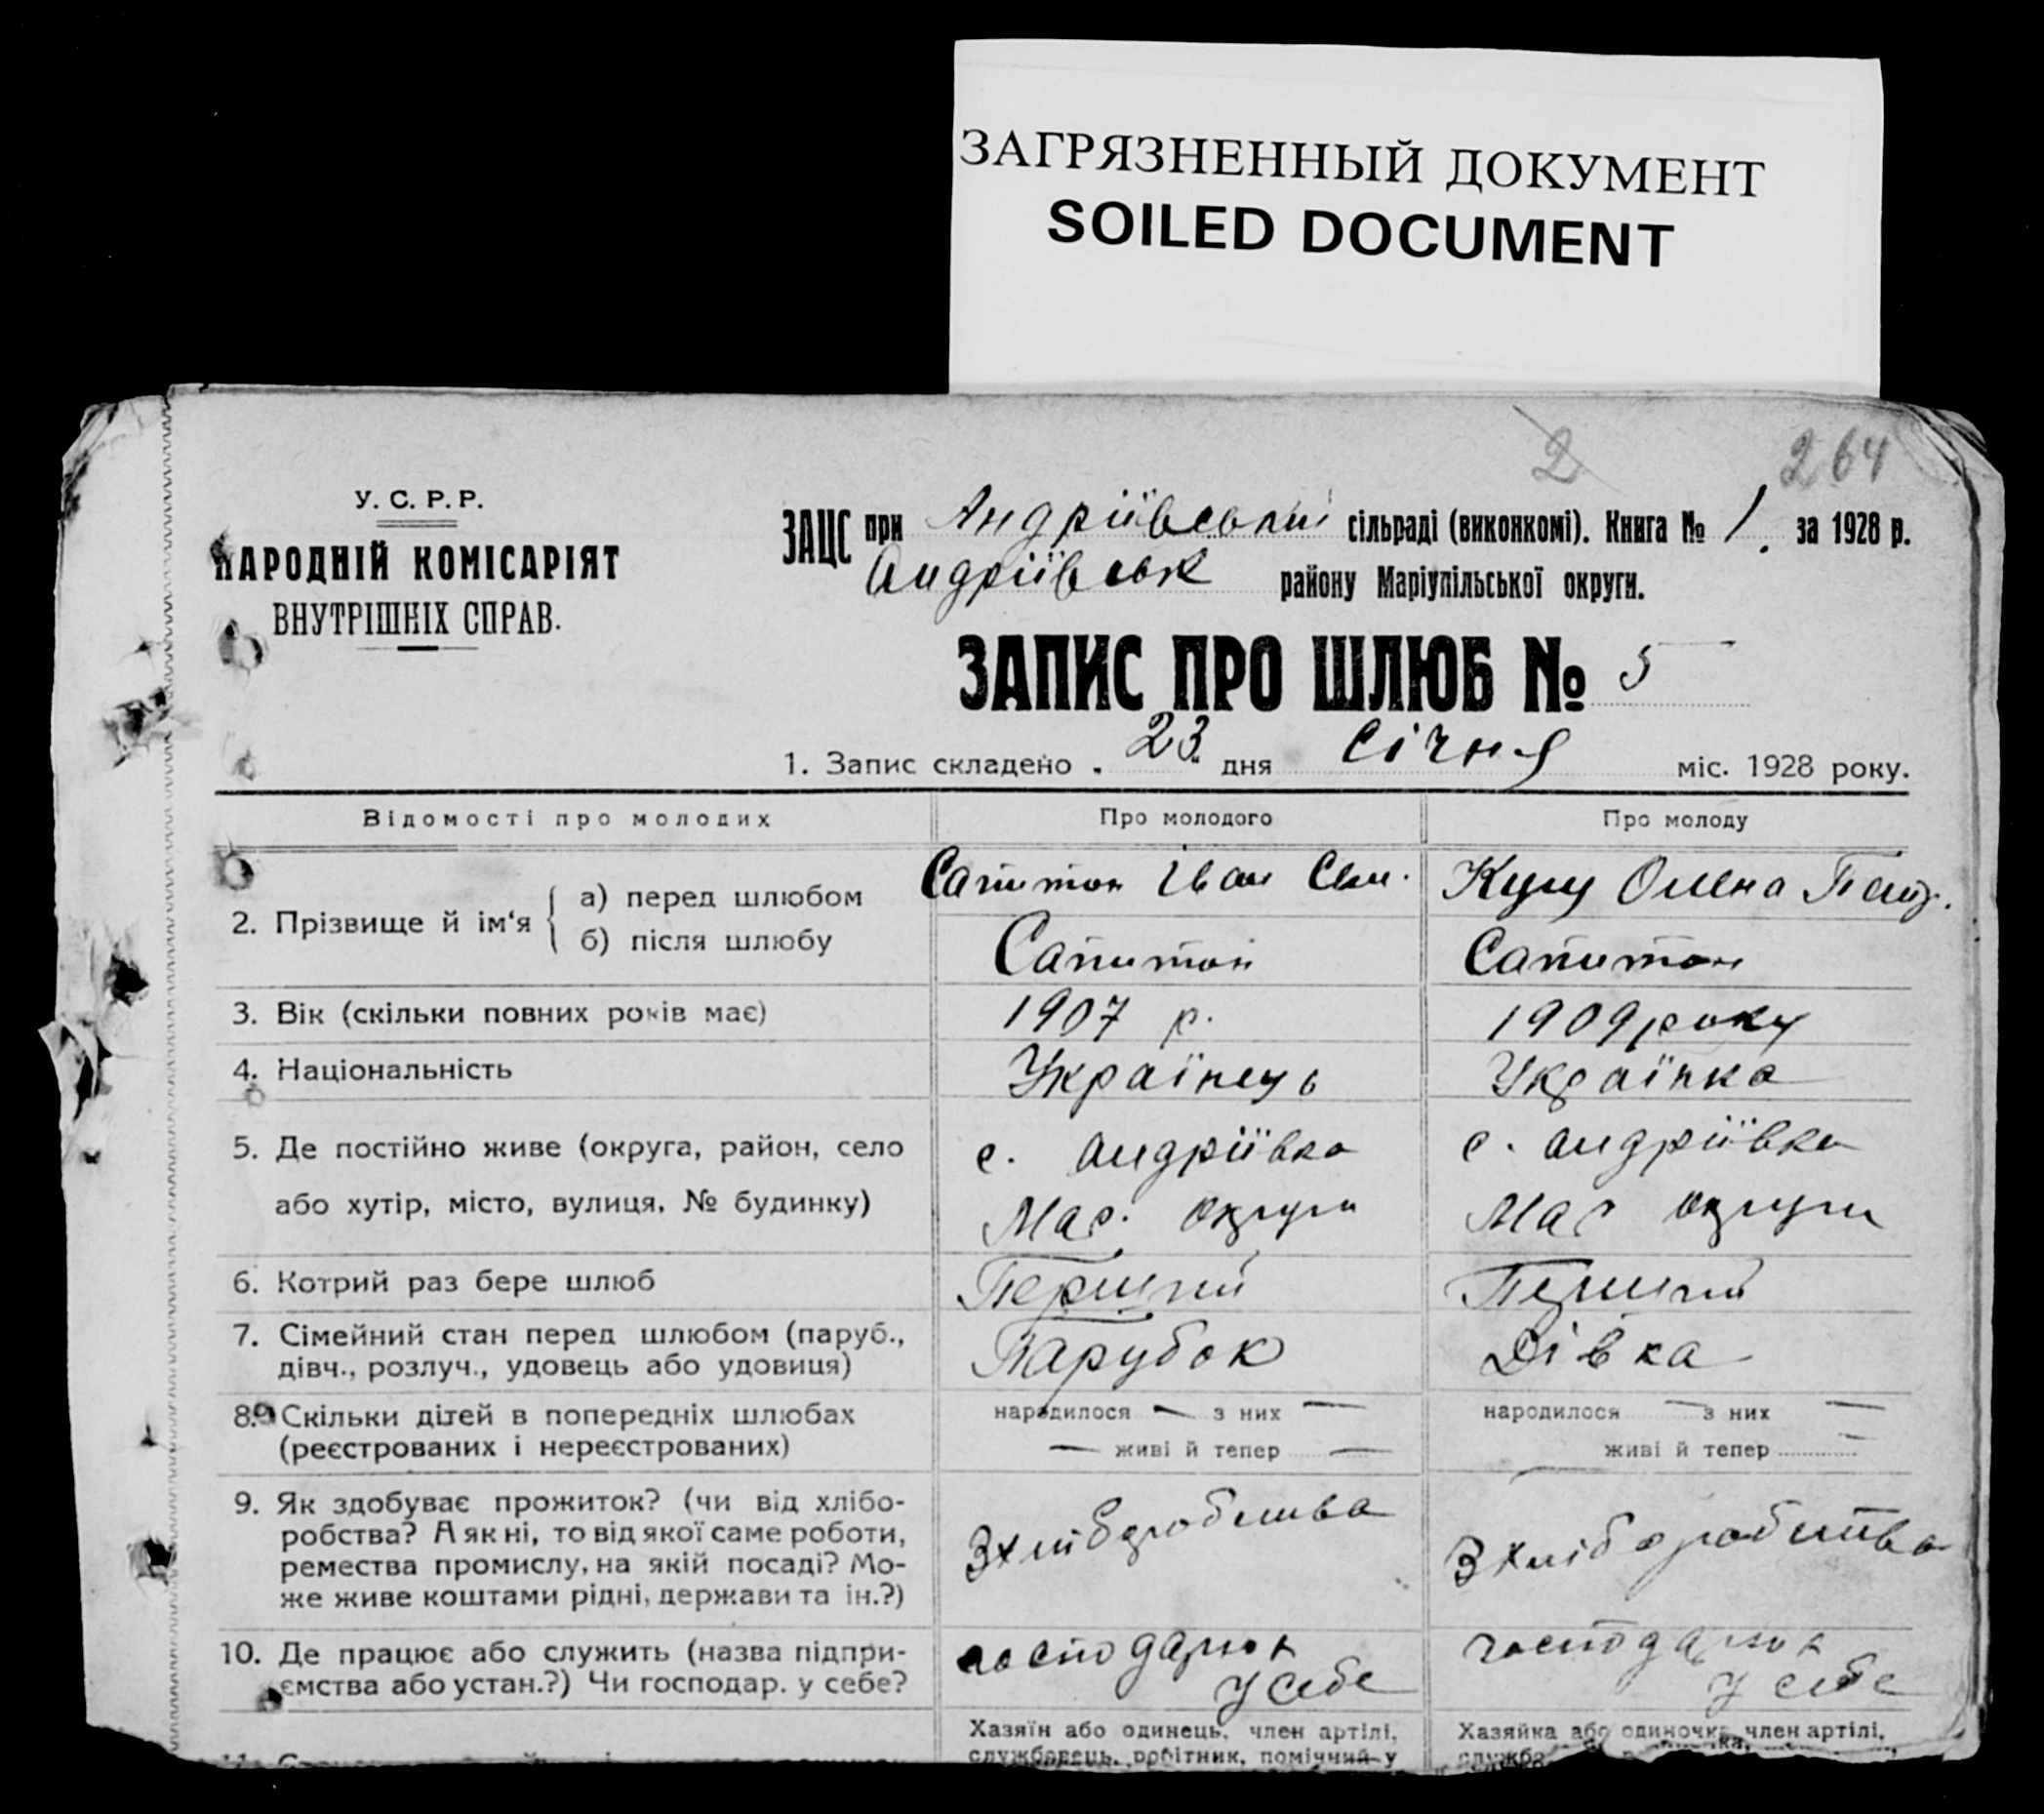 ЗАГРЯЗНЕННЫЙ ДОКУМЕНТ
SOILED DOCUMENT
2 264
У. С. Р. Р.
НАРОДНІЙ КОМІСАРІЯТ
ВНУТРІШНІХ СПРАВ.
ЗАЦС при Андріївській сільраді (виконкомі). Книга № 1. за 1928 р.
Андріївськ району Маріупільської округи.
ЗАПИС ПРО ШЛЮБ № 5
1. Запис складено „ 23 " дня Січня міс. 1928 року.
Відомості про молодих Про молодого Про молоду
2. Прізвище й ім‘я
а) перед шлюбом Сапитон Іван Олена
б) після шлюбу Сапитон Сапитон
3. Вік (скільки повних років має) 1907 р. 1909 року
4. Національність Українець Українка
5. Де постійно живе (округа, район, село с. Андріївка с. Андріївка
або хутір, місто, вулиця, № будинку) Мар. округи Мар округи
6. Котрий раз бере шлюб Перший Перший
7. Сімейний стан перед шлюбом (паруб.,
дівч., розлуч., удовець або удовиця) Парубок Дівка
8. Скільки дітей в попередніх шлюбах народилося — з них — народилося — з них —
(реєстрованих і нереєстрованих) — живі й тепер — живі й тепер —
9. Як здобуває прожиток? (чи від хлібо-
робства? А як ні, то від якої саме роботи, З хліборобства З хліборобства
ремества промислу, на якій посаді? Мо-
же живе коштами рідні, держави та ін.?)
10. Де працює або служить (назва підпри-
ємства або устан.?) Чи господар. у себе? у себе у себе
Хазяїн або одинець, член артілі, Хазяйка або одиночка, член артілі,
службовець, робітник, помічний у